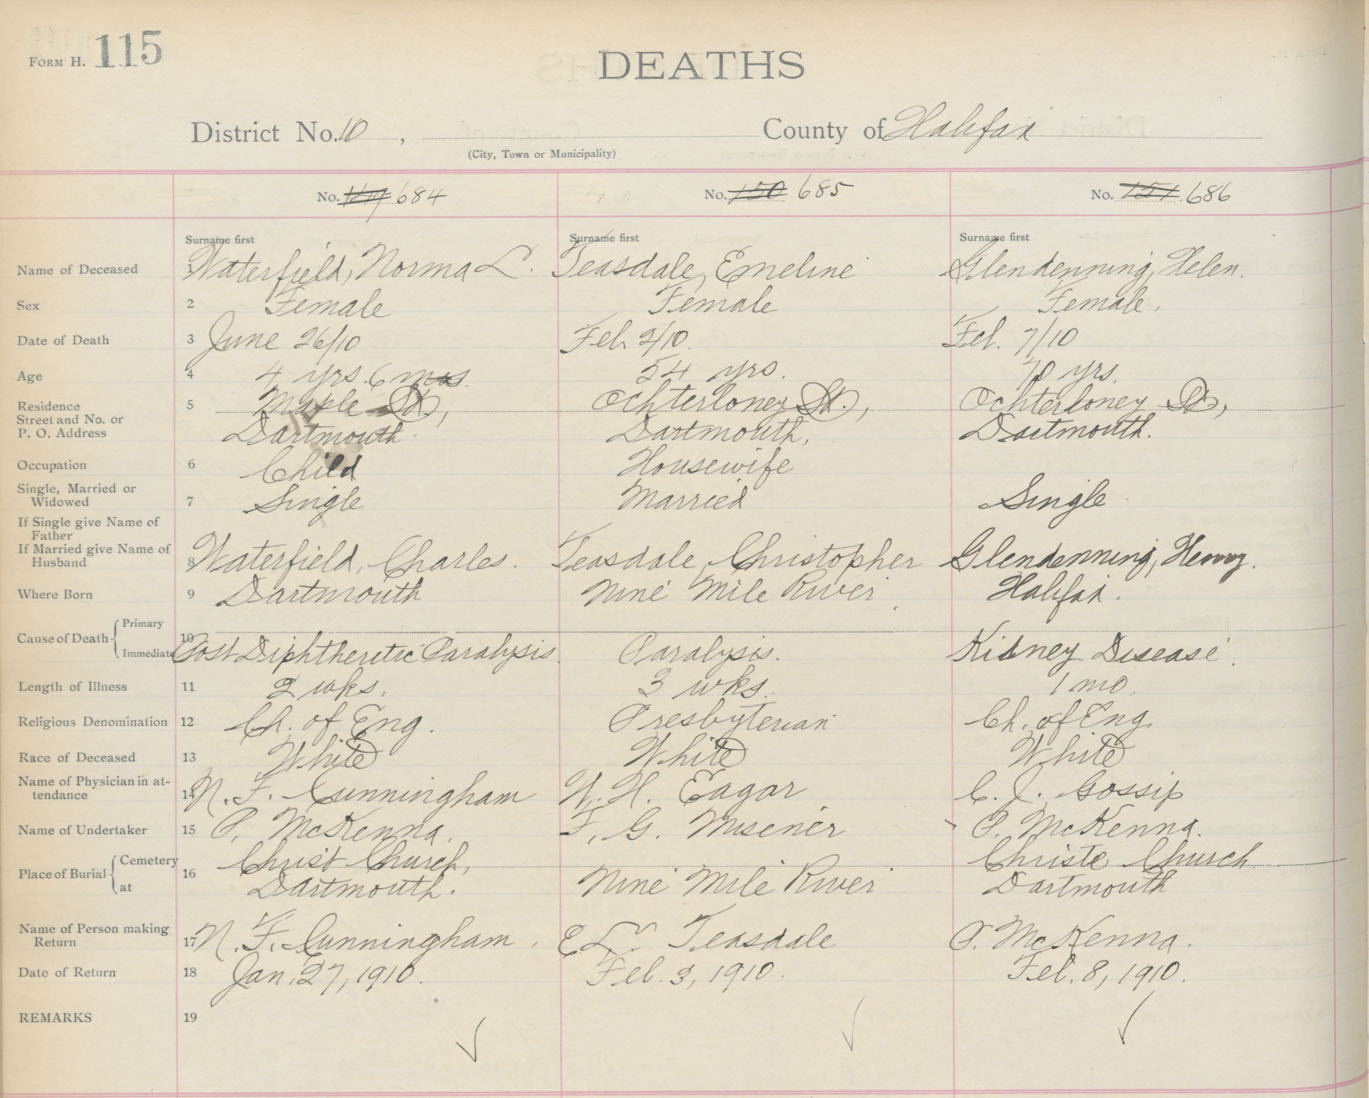 FORM H. 115
DEATHS
District No. 10 , County of Halifax
(City, Town or Municipality)
No. 149 684 No. 150 685 No. 151 686
Surname first Surname first Surname first
Name of Deceased 1 Waterfield, Norma L. Teasdale, Emeline Glendenning, Helen.
Sex 2 Female Female Female.
Date of Death 3 June 26/10 Feb 2/10. Feb. 7/10
Age 4 4 yrs. 6 mos. 54 yrs. 70 yrs.
Residence 5 Maple St., Ochterloney St., Ochterloney St.,
Street and No. or
P. O. Address Dartmouth. Dartmouth, Dartmouth.
Occupation 6 Child Housewife
Single, Married or
Widowed 7 Single Married Single
If Single give Name of
Father
If Married give Name of
Husband 8 Waterfield, Charles. Teasdale, Christopher Glendenning, Henry.
Where Born 9 Dartmouth Nine Mile River. Halifax.
Cause of Death Primary
10
Immediate Post Diphtheretic Paralysis. Paralysis. Kidney Disease.
Length of Illness 11 2 wks. 3 wks. 1 mo.
Religious Denomination 12 Ch. of Eng. Presbyterian Ch. of Eng.
Race of Deceased 13 White White White
Name of Physician in at-
tendance 14 N. F. Cunningham W. H. Eagar C. J. Gossip
Name of Undertaker 15 P. McKenna. F. G. Misener P. McKenna.
Place of Burial Cemetery Christ Church, Christe Church
at 16 Dartmouth. Nine Mile River Dartmouth
Name of Person making
Return 17 N. F. Cunningham. E L. Teasdale P. McKenna.
Date of Return 18 Jan. 27, 1910. Feb. 3, 1910. Feb. 8, 1910.
REMARKS 19